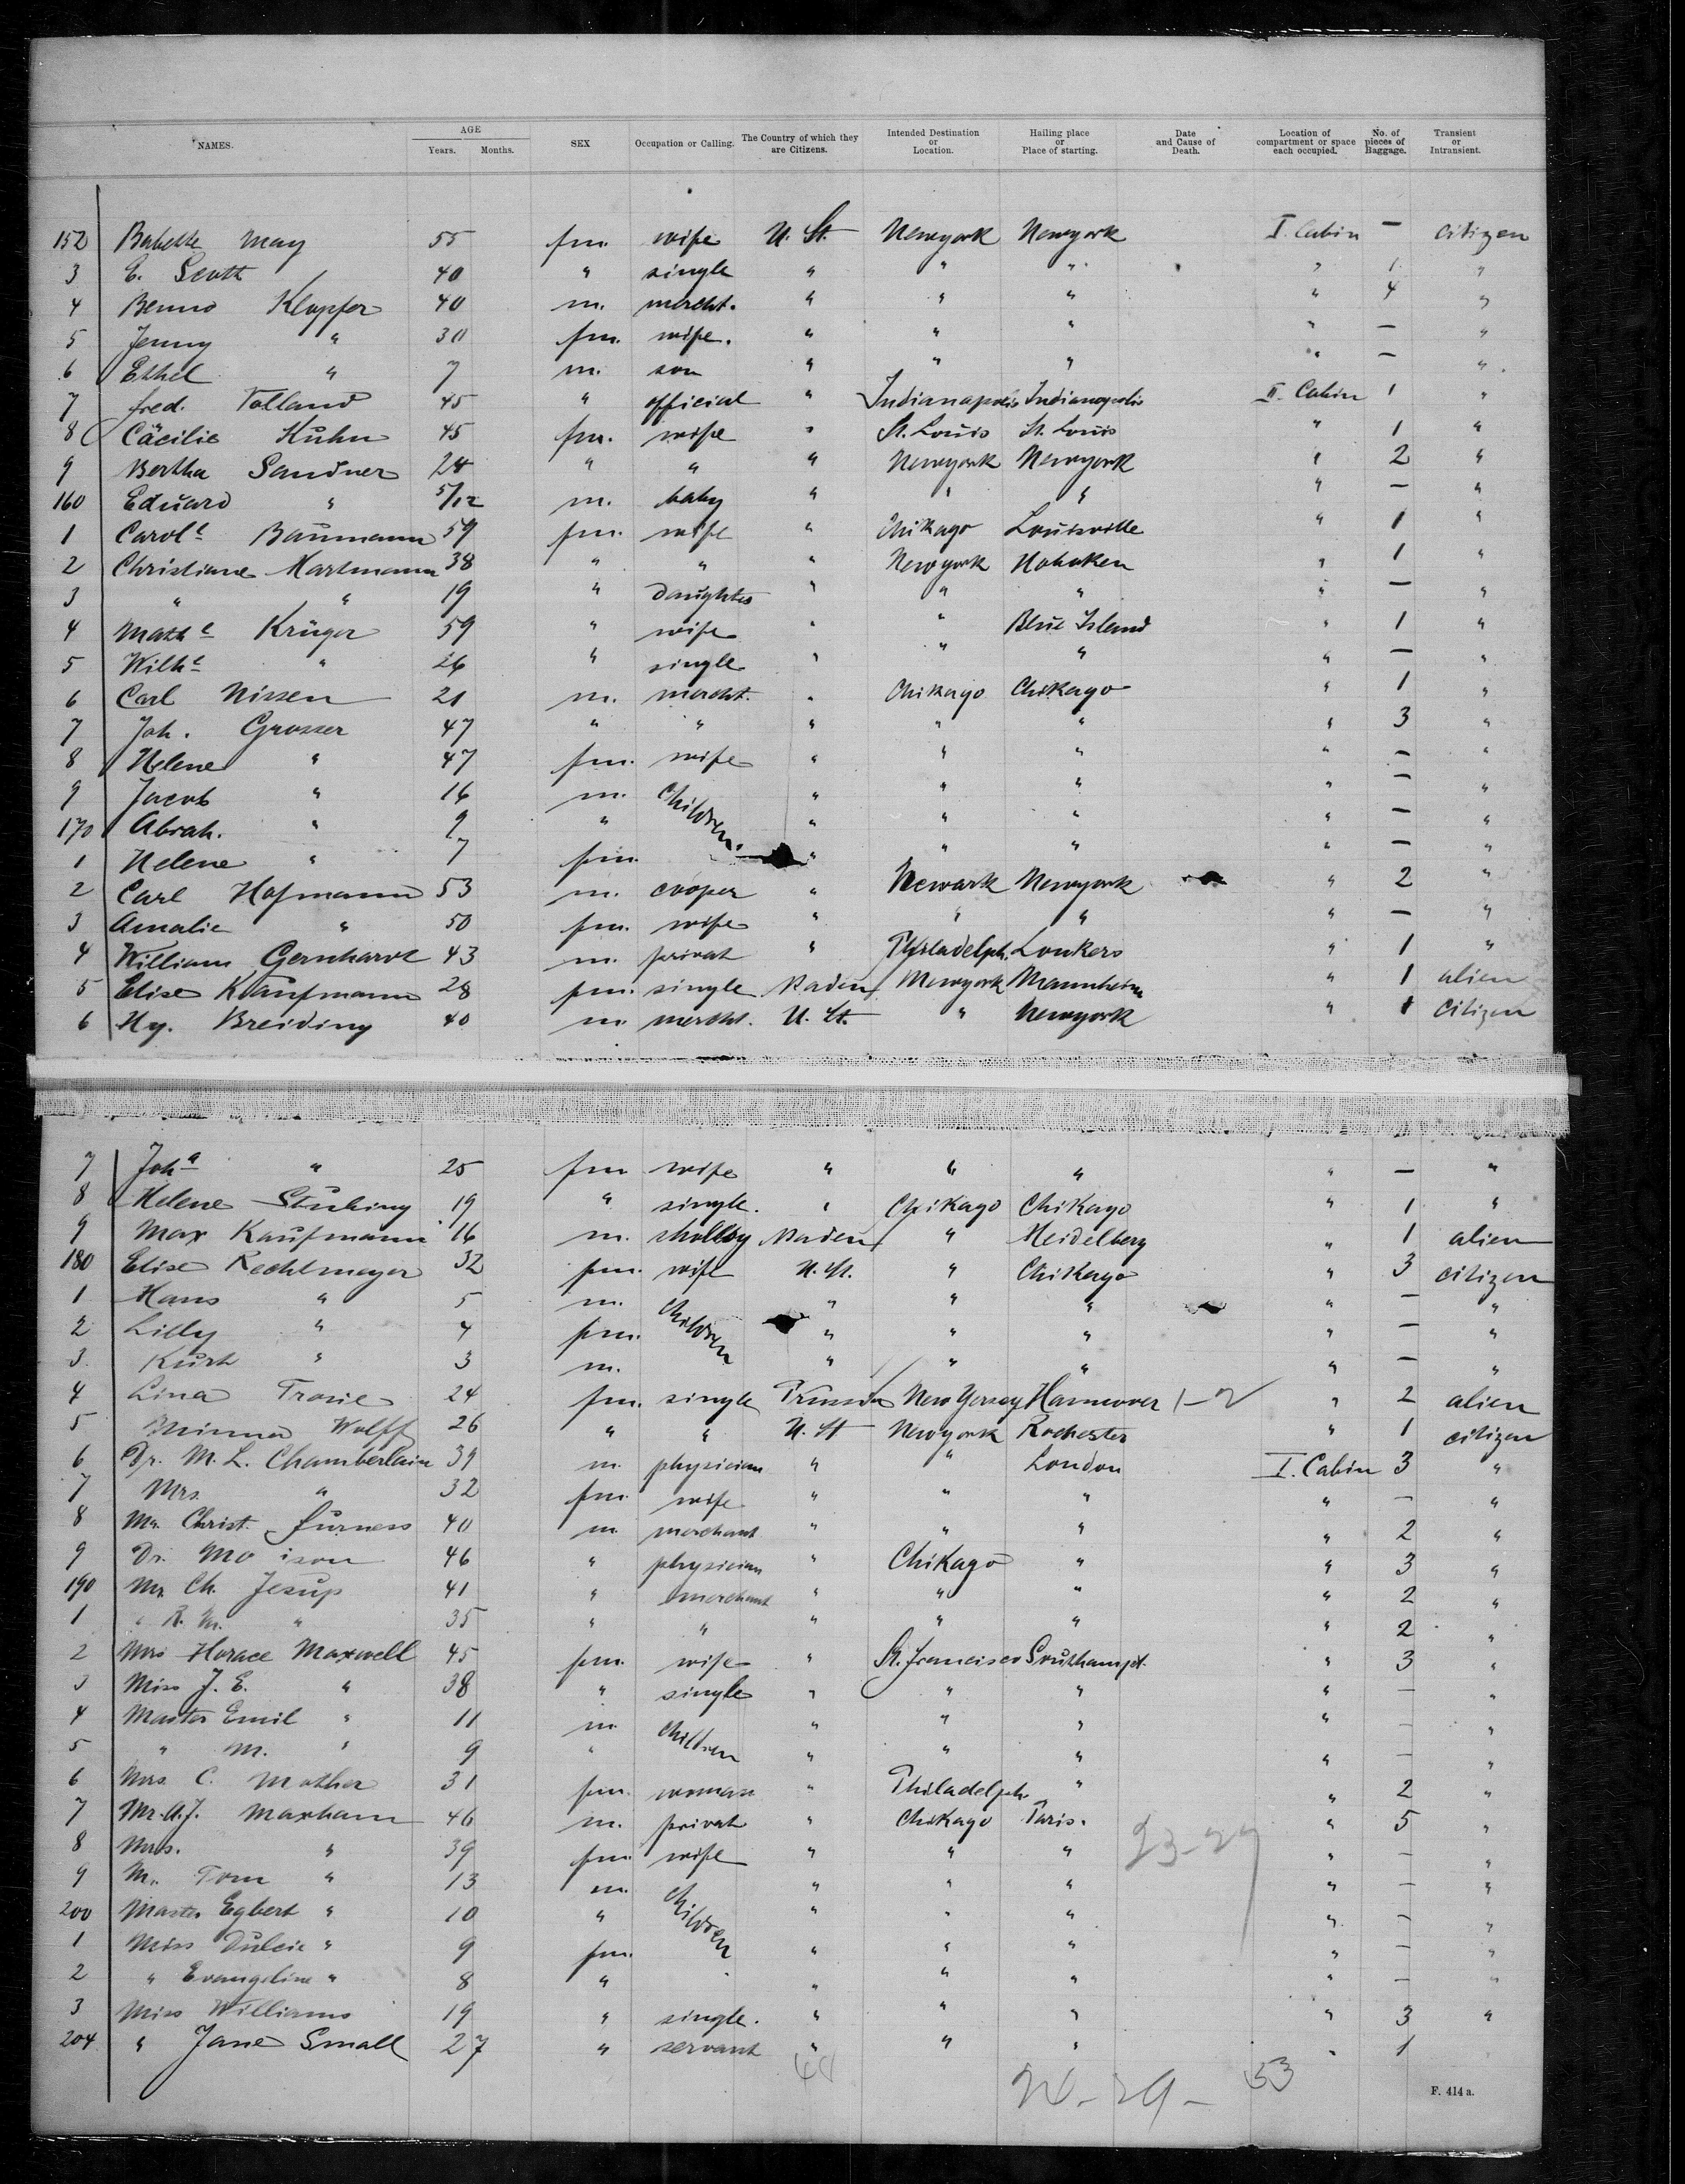 NAMES. AGE Years. Months. SEX Occupation or Calling. The Country of which they are Citizens. Intended Destination or Location. Hailing place or Place of starting. Date and Cause of Death. Location of compartment or space each occupied. No. of pieces of Baggage. Transient or Intransient.
152 Babette May 55 fm. wife U. St. Newyork Newyork I. Cabin — citizen
3 E. Scott 40 " single " " " " 1 "
4 Benno Klopfer 40 m. mercht. " " " " 4 "
5 Jenny " 30 fm. wife. " " " " — "
6 Ethel " 7 m. son " " " " — "
7 fred. Tolland 45 " official " Indianapolis Indianapolis II. Cabin 1 "
8 Cäcilie Kuhn 45 fm. wife " St. Louis St. Louis " 1 "
9 Bertha Sandner 24 " " " Newyork Newyork " 2 "
160 Eduard " 5/12 m. baby " " " " — "
1 Carole Baumann 59 fm. wife " Chikago Louisville " 1 "
2 Christiane Hartmann 38 " " " Newyork Hoboken " 1 "
3 " " 19 " daughter " " " " — "
4 Mathe Krüger 59 " wife " " Blue Island " 1 "
5 Wilhe " 26 " single " " " " — "
6 Carl Nissen 21 m. mercht. " Chikago Chikago " 1 "
7 Joh. Grosser 47 " " " " " " 3 "
8 Helene " 47 fm. wife " " " " — "
9 Jacob " 16 m. Children " " " " — "
170 Abrah. " 9 " " " " " — "
1 Helene " 7 fm. " " " " — "
2 Carl Hofmann 53 m. cooper " Newark Newyork " 2 "
3 Amalie " 50 fm. wife " " " " — "
4 William Gernhardt 43 m. privat " Philadelph. Yonkers " 1 "
5 Elise Kaufmann 28 fm. single Baden Newyork Mannheim " 1 alien
6 Hy. Breiding 40 m. mercht. U. St. " Newyork " 1 citizen
7 Joha " 25 fm wife " " " " — "
8 Helene Stubing 19 " single. " Chikago Chikago " 1 "
9 Max Kaufmann 16 m. sholboy Baden " Heidelberg " 1 alien
180 Elise Rechtmeyer 32 fm. wife U. St. " Chikago " 3 citizen
1 Hans " 5 m. Children " " " " — "
2 Lilly " 4 fm. " " " " — "
3 Kurt " 3 m. " " " " — "
4 Lina 24 fm. single Prussia New Yersey Hannover 1-2 " 2 alien
5 Minna Wolff 26 " " U. St Newyork Rochester " 1 citizen
6 Dr. M. L. Chamberlain 39 m. physician " " London I. Cabin 3 "
7 Mrs. " 32 fm. wife " " " " — "
8 Mr. Christ. furness 40 m. merchant " " " " 2 "
9 Dr. Mo ison 46 " physician " Chikago " " 3 "
190 Mr. Ch. Jesup 41 " merchant " " " " 2 "
1 " R. M. " 35 " " " " " " 2 "
2 Mrs Horace Maxwell 45 fm. wife " St. francisco Southampt. " 3 "
3 Miss J. E. " 38 " single " " " " — "
4 Master Emil " 11 m. Children " " " " — "
5 " M. " 9 " " " " " — "
6 Mrs. C. Mother 31 fm. woman " Philadelph " " 2 "
7 Mr. A. J. Maxham 46 m. privat " Chikago Paris. " 5 "
8 Mrs. " 39 fm. wife " " " " — "
9 Mr. Tom " 13 m. Children " " " " — "
200 Master Egbert " 10 " " " " " — "
1 Miss Dulcie " 9 fm. " " " " — "
2 " Evangeline " 8 " " " " " — "
3 Miss Williams 19 " single. " " " " 3 "
204 " Jane Small 27 " servant " " " " 1
F. 414 a.